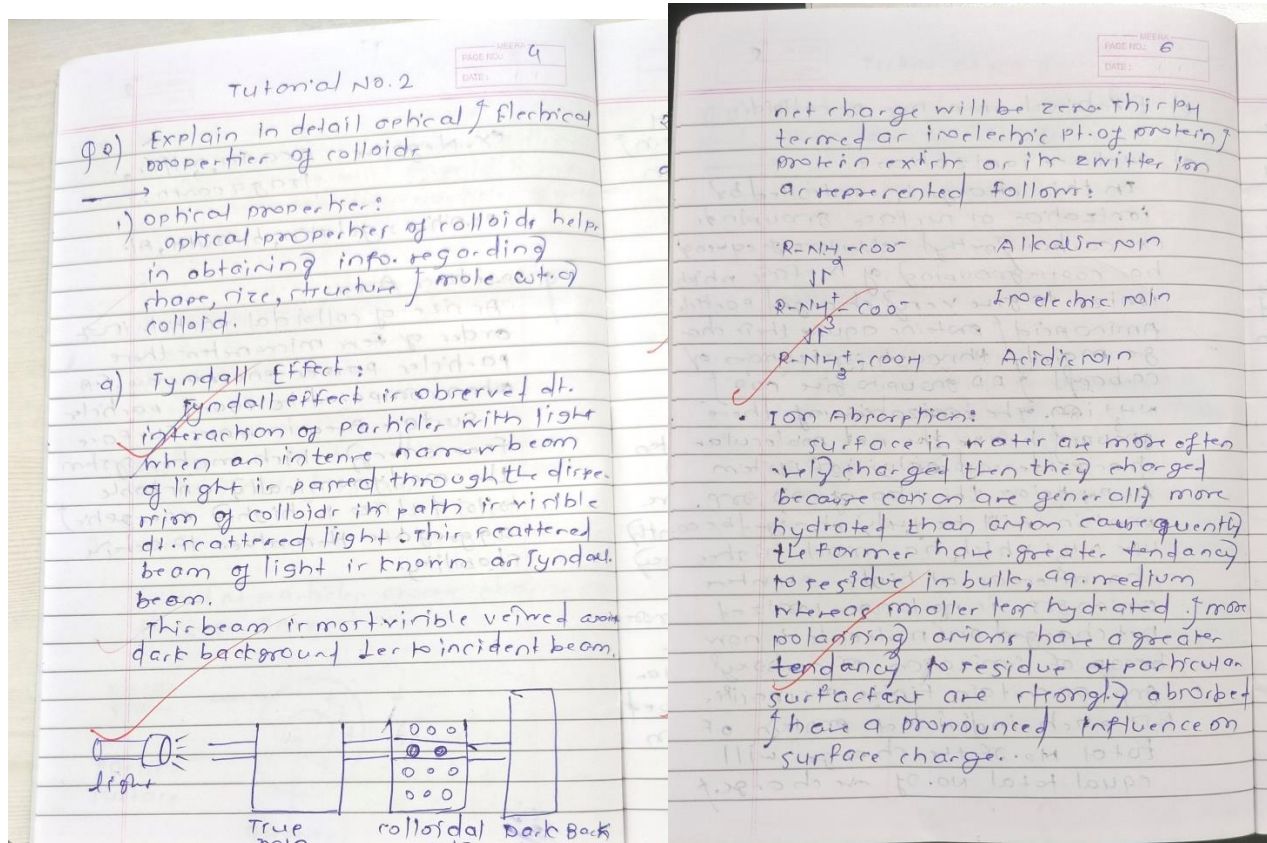 MEERA
PAGE NO.: 4
DATE:
Tutorial No. 2
Explain in detail optical & Electrical
properties of colloids
→
1) optical properties:
optical properties of colloids help
in obtaining info. regarding
shape, size, structure & mole. cut. of
colloid.
a) Tyndall Effect:
Tyndall effect is observed dt.
interaction of particles with light
when an intense narrow beam
of light is passed through the dispe-
rsion of colloids its path is visible
dt. scattered light. This scattered
beam of light is known as Tyndall
beam.
This beam is most visible veiwed
dark background ler to incident beam.
light
True
colloidal
Dark Back
MEERA
PAGE NO.: 6
DATE:
net charge will be zero. This pH
termed as isoelectric pt. of protein &
protein exists as its zwitter ion
as represented follows:
R-NH2-COO- Alkaline soln
⇅
R-NH3+-COO- Isoelectric soln
⇅
R-NH3+-COOH Acidic soln
• Ion Absorption:
surface in water are more often
-vely charged then they charged
because cation are generally more
hydrated than anion causequently
the former have greater tendancy
to residue in bulk, aq. medium
whereas smaller less hydrated & more
polarising anions have a greater
tendancy to residue at particular
surfactant are strongly absorbed
& have a pronounced influence on
surface charge..